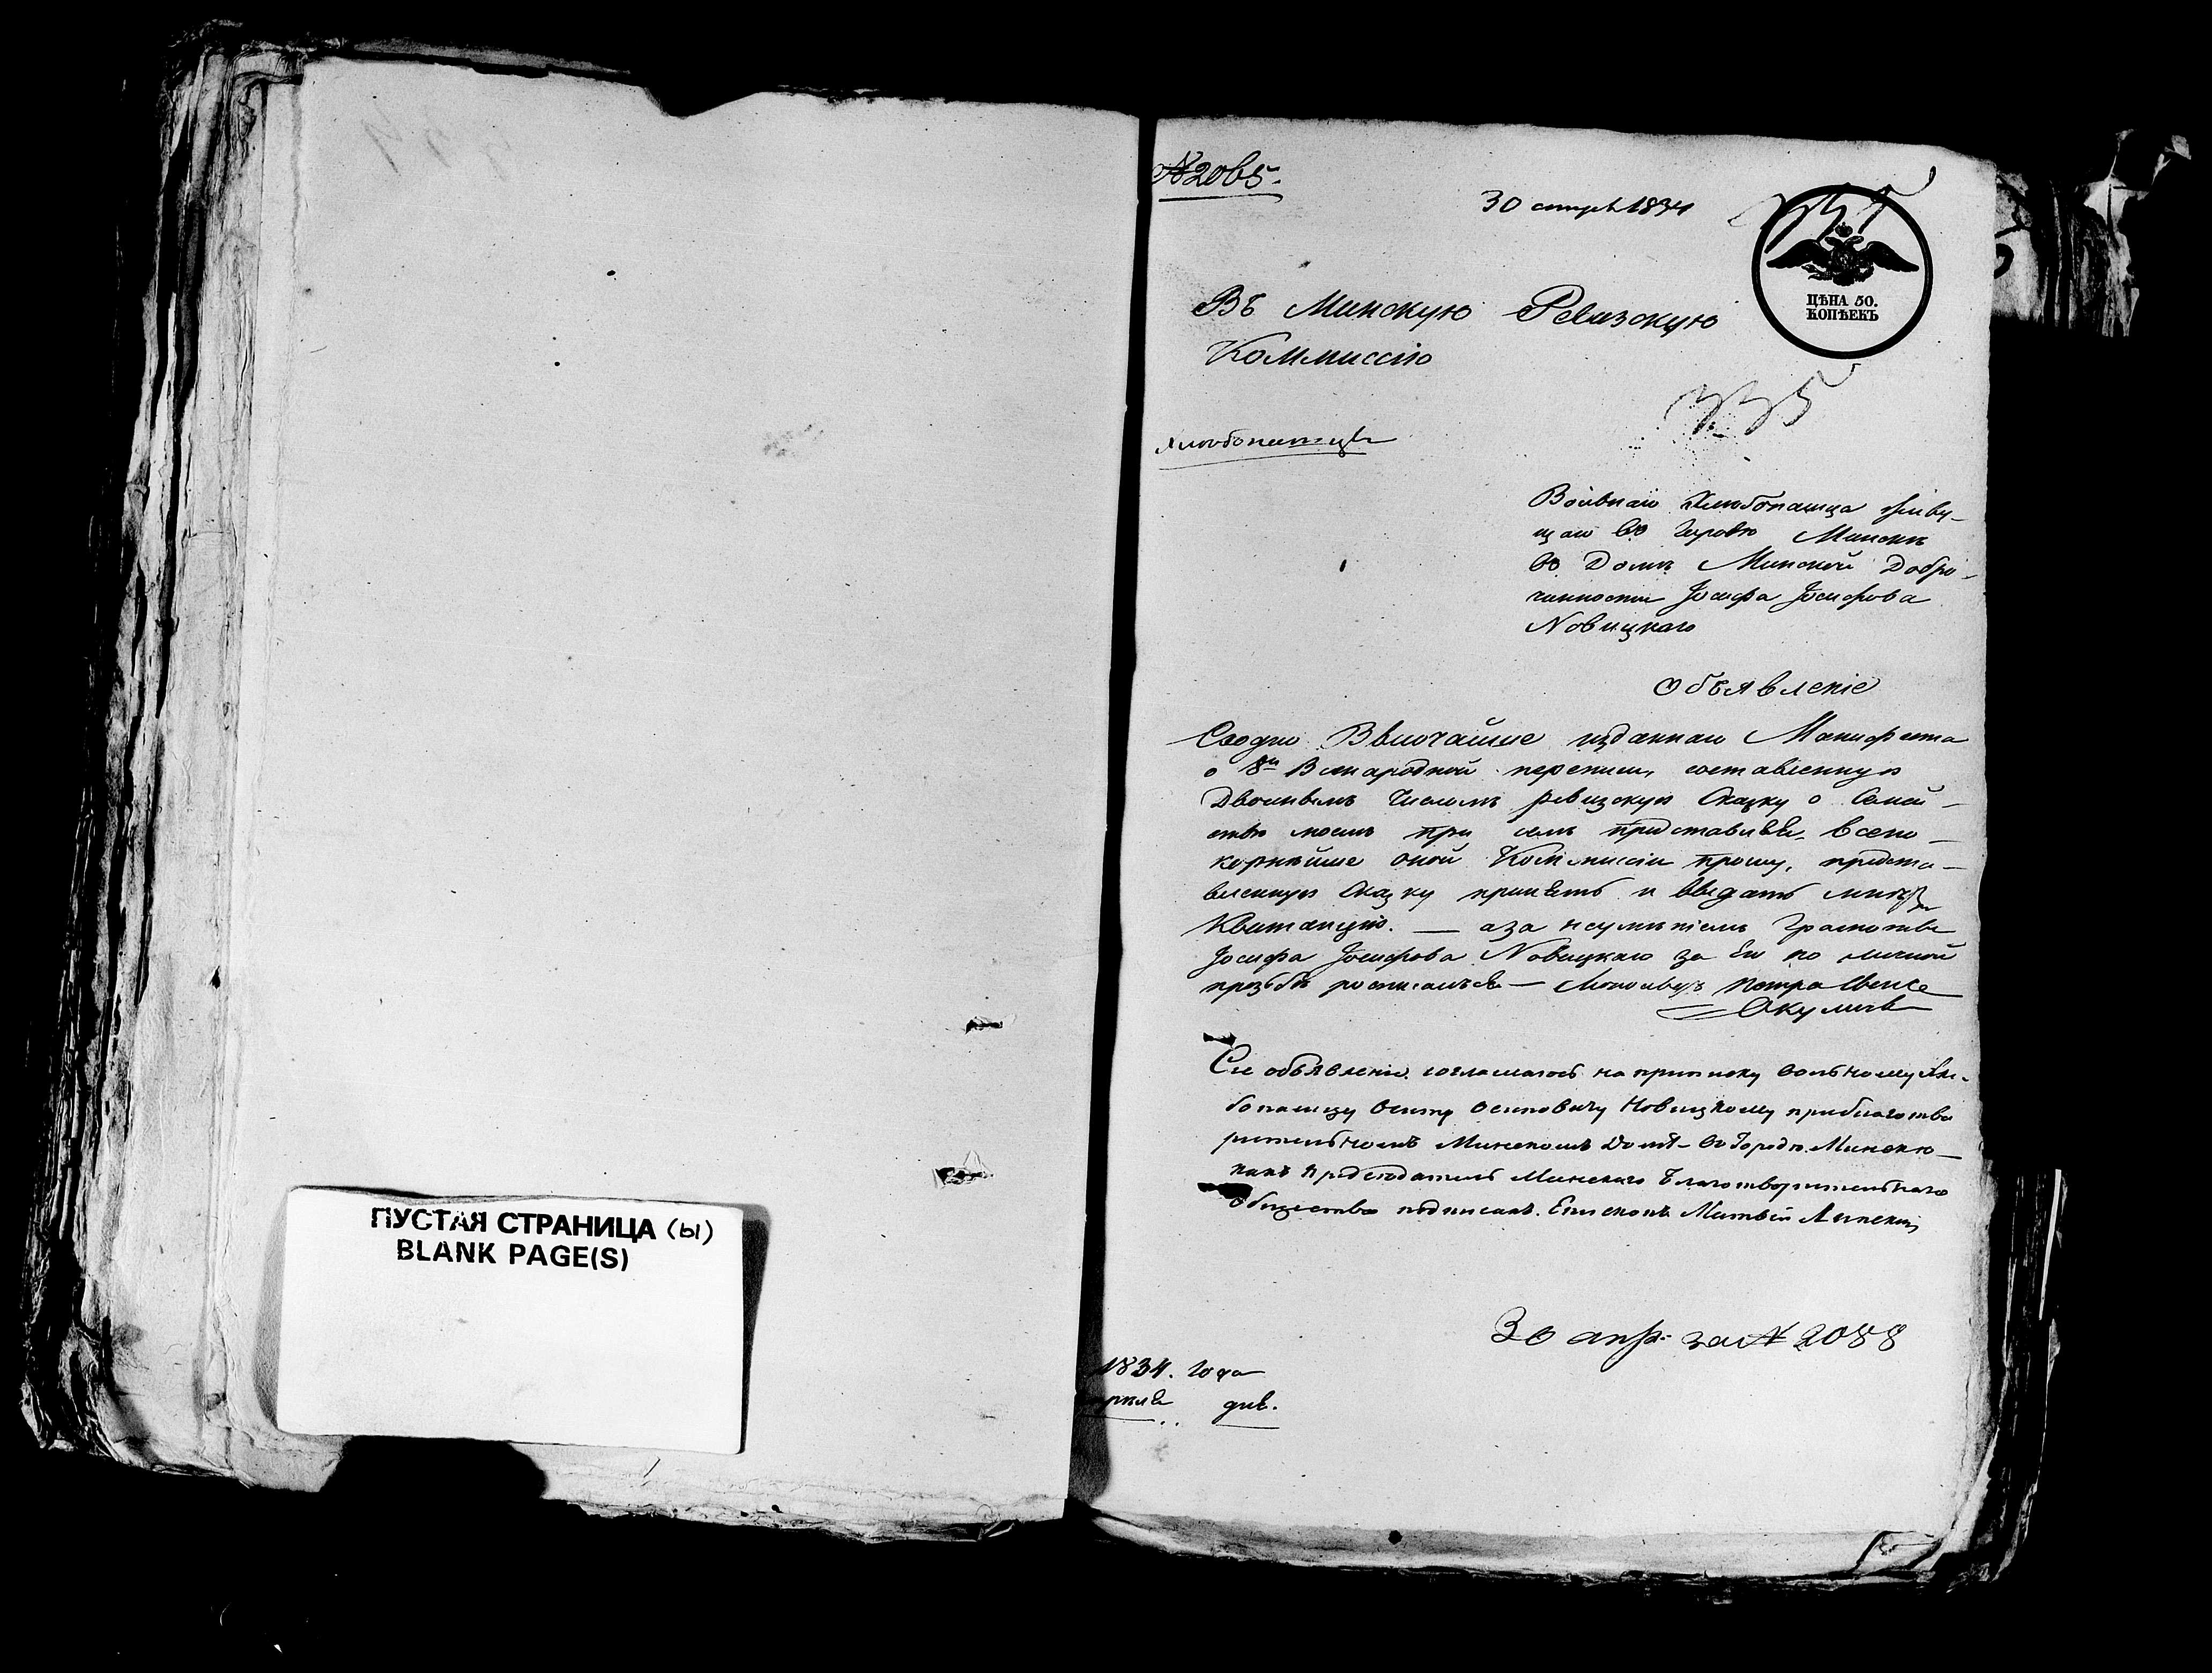 № 2065.
30 апрѣля 1834
335
ЦѢНА 50.
КОПѢЕКЪ
Въ Минскую Ревизскую
Коммиссію
335
Вольнаго Хлѣбопашца живу-
щаго въ городѣ Минскѣ
въ Домѣ Минской Добро-
чинности Іосифа Іосифова
Новицкаго
Объявленіе
Высочайше изданнаго Манифеста
о 8й Всенародной переписи, составленную
Двойнымъ Числомъ ревизскую Сказку о Семей-
ствѣ моемъ при семъ представляя, всепо-
корнѣйше оной Коммиссіи прошу, предста-
вленную Сказку принять и выдать мнѣ
Квитанцію. — а за неумѣніемъ Грамоты
Іосифа Іосифова Новицкаго за его по личной
прозьбѣ росписался —
Окуличъ
Сіе объявленіе согласаюсь на приписку вольному Хлѣ-
бопашцу Осипу Осиповичу Новицкому при благотво
рительномъ Минскомъ Домѣ въ Городѣ Минскѣ
какъ Предсѣдатель Минскаго Благотворительнаго
Общества подписалъ. Епископъ Матвѣй Липскій
30 апр: за № 2088
1834. Года
апрѣля дня.
ПУСТАЯ СТРАНИЦА (ы)
BLANK PAGE(S)